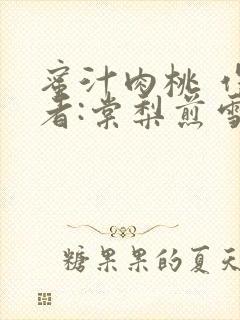 蜜汁肉桃 作
者:棠梨煎雪
糖果果的夏天